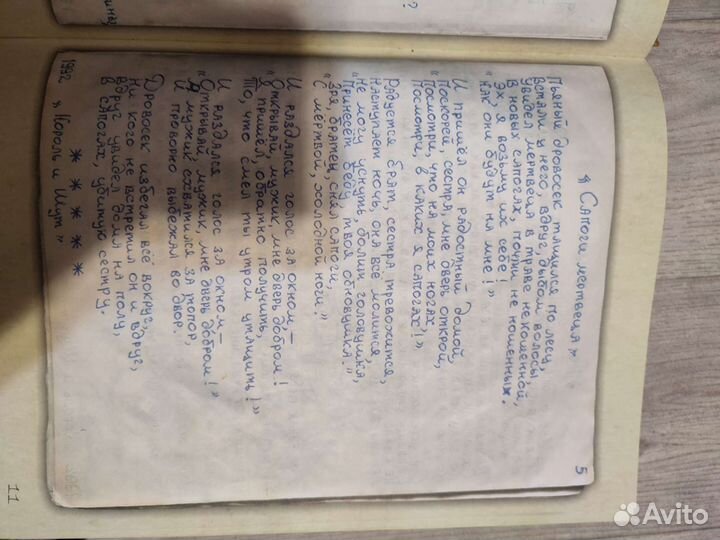 5
« Сапоги мертвеца »
Пьяный дровосек тащился по лесу,
Встали у него, вдруг, дыбом волосы.
Увидел мертвеца в траве некошенной,
В новых сапогах, почти не ношенных.
Эх, я возьму их себе!
Как они будут на мне!»
И пришёл он радостный домой,
"Поскорей, сестра, мне дверь открой,
Посмотри, что на моих ногах,
Посмотри, в каких я сапогах!»
Радуется брат, сестра тревожится,
Наступает ночь, она всё молится,
"Не могу уснуть, болит головушка,
Принесёт беду, твоя обновушка."
Зря братец, снял сапоги,
"С мёртвой, холодной ноги."
И раздался голос за окном,–
"Открывай, мужик, мне дверь добром!
Я пришёл, обратно получить,
То, что смел ты утром утащить!»
И раздался голос за окном–
"Открывай мужик, мне дверь добром!»
А мужик схватился за топор,
И проворно выбежал во двор.
Дровосек избежал всё вокруг,
Ни кого не встретил он и вдруг,
Вдруг увидел дома на полу,
В сапогах, убитую сестру.
* * * * *
1992 « Король и Шут »
11
?
Avito